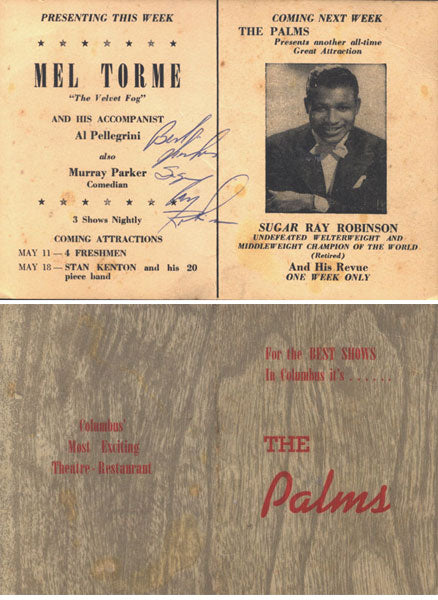 PRESENTING THIS WEEK
MEL TORME
"The Velvet Fog"
AND HIS ACCOMPANIST
Al Pellegrini
also
Murray Parker
Comedian
3 Shows Nightly
COMING ATTRACTIONS
MAY 11—4 FRESHMEN
MAY 18—STAN KENTON and his 20
piece band
Best
Sug
Ray
Robinson
COMING NEXT WEEK
THE PALMS
Presents another all-time
Great Attraction
SUGAR RAY ROBINSON
UNDEFEATED WELTERWEIGHT AND
MIDDLEWEIGHT CHAMPION OF THE WORLD
(Retired)
And His Revue
ONE WEEK ONLY
Columbus'
Most Exciting
Theatre-Restaurant
For the BEST SHOWS
In Columbus it's . . . . . .
THE
Palms